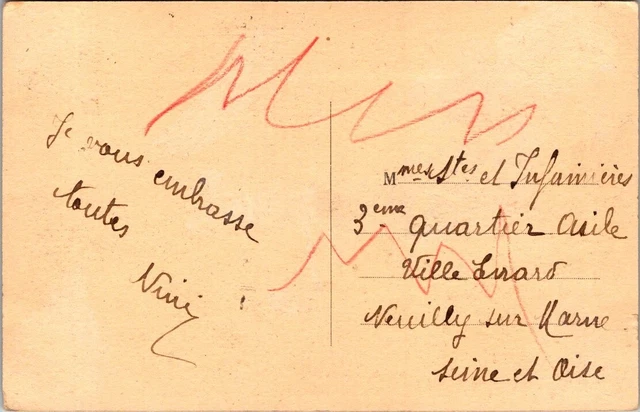 Je vous embrasse
toutes
Nini
Mmes Stes et Infirmières
3eme Quartier Asile
Ville Evrard
Neuilly sur Marne
Seine et Oise